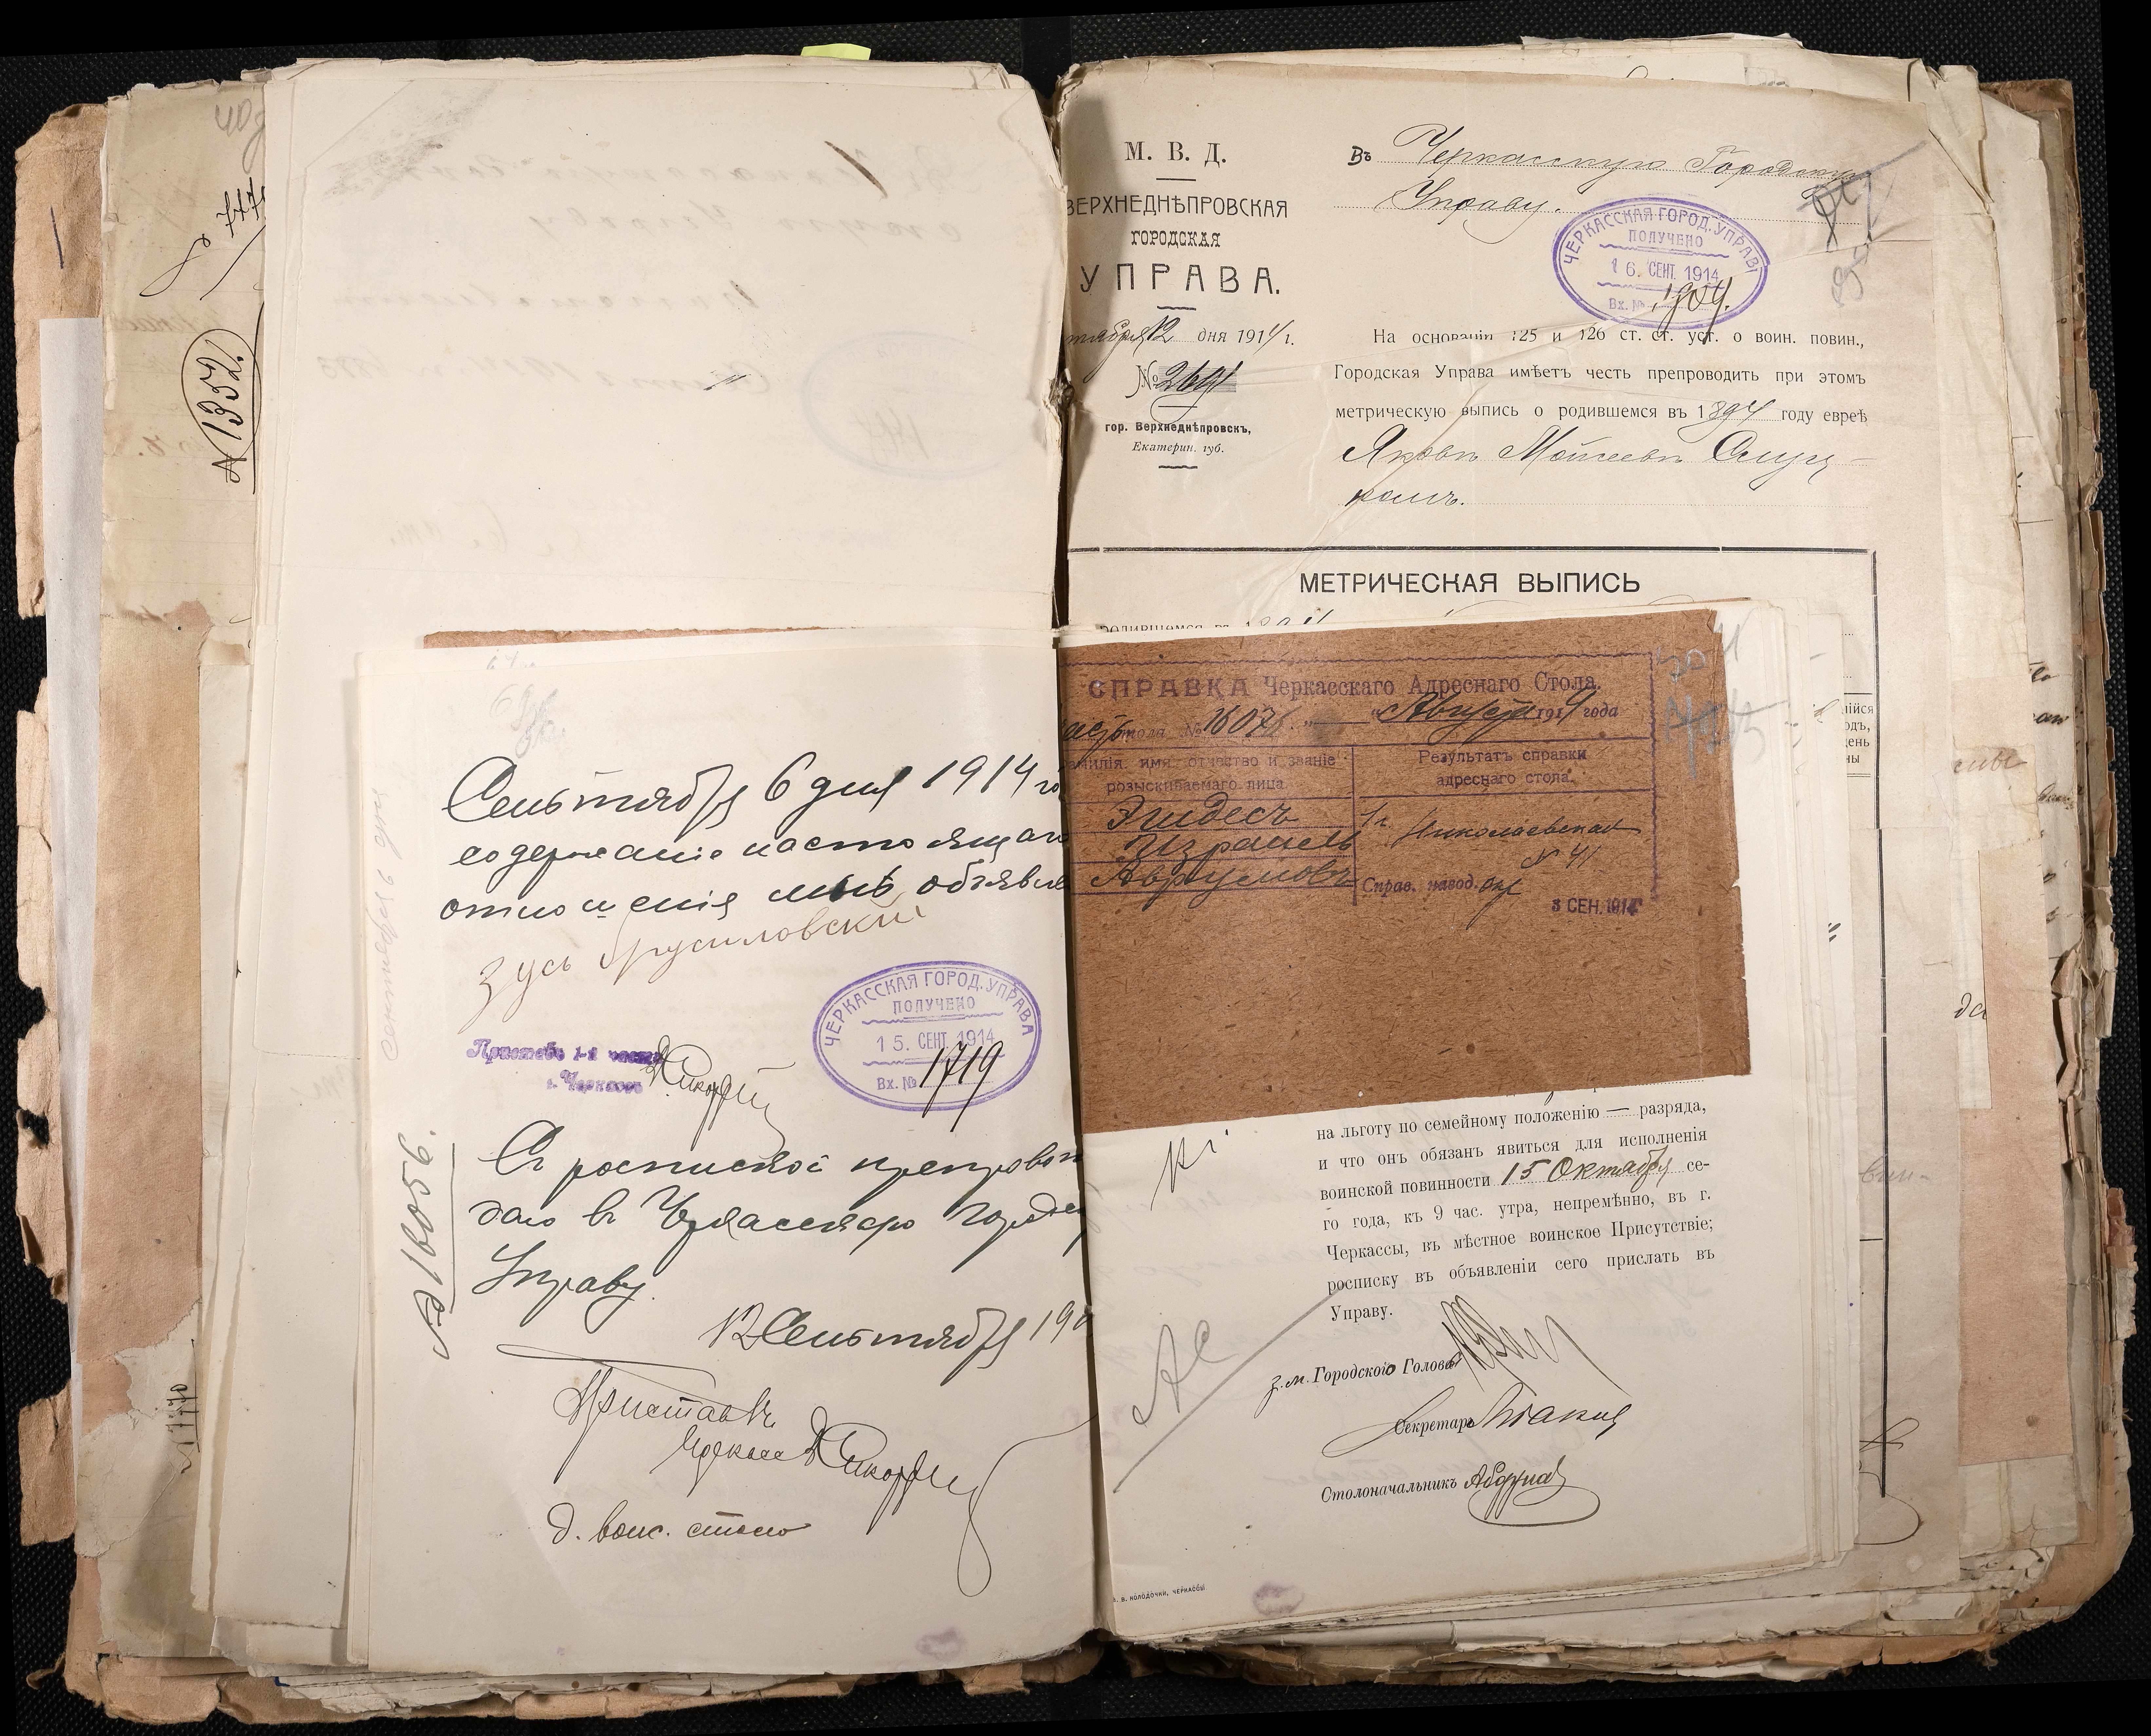 777
№ 1352.
Сентября 6 дня 1914 го
содержаніе настоящаго
отношенія мнѣ объявле
Зусь Брусиловскій
Приставъ 1-й части
г. Черкассъ
ЧЕРКАССКАЯ ГОРОД. УПРАВА
ПОЛУЧЕНО
15. СЕНТ. 1914
Вх. № 1719
№ 16056.
Съ роспиской препровож
даю въ Черкасскую Городск
Управу.
12 Сентября 191
Приставъ
д. воис. стола
М. В. Д.
ВЕРХНЕДНѢПРОВСКАЯ
ГОРОДСКАЯ
УПРАВА.
тября 12 дня 1914 г.
№ 2641
гор. Верхнеднѣпровскъ,
Екатерин. губ.
Въ Черкасскую Городскую
Управу.
ЧЕРКАССКАЯ ГОРОД. УПРАВА
ПОЛУЧЕНО
16. СЕНТ. 1914
Вх. № 1904.
На основаніи 125 и 126 ст. ст. уст. о воин. повин.,
Городская Управа имѣетъ честь препроводить при этомъ
метрическую выпись о родившемся въ 1894 году евреѣ
Яковъ Мошеевъ
МЕТРИЧЕСКАЯ ВЫПИСЬ
родившемся въ 1894
СПРАВКА Черкасскаго Адреснаго Стола.
стола № 16076. „ " Августа 1914 года
амилія, имя, отчество и званіе
розыскиваемаго лица
Результатъ справки
адреснаго стола.
Эйдесъ
Израиль
Аврумовъ
1 ч Николаевская
№ 41
Справ. навод.
3 СЕН. 1914
на льготу по семейному положенію — разряда,
и что онъ обязанъ явиться для исполненія
воинской повинности 15 Октября се-
го года, къ 9 час. утра, непремѣнно, въ г.
Черкассы, въ мѣстное воинское Присутствіе;
росписку въ объявленіи сего прислать въ
Управу.
з.м. Городского Головы
Секретарь
Столоначальникъ
В. КОЛОДОЧКИ, ЧЕРКАССЫ